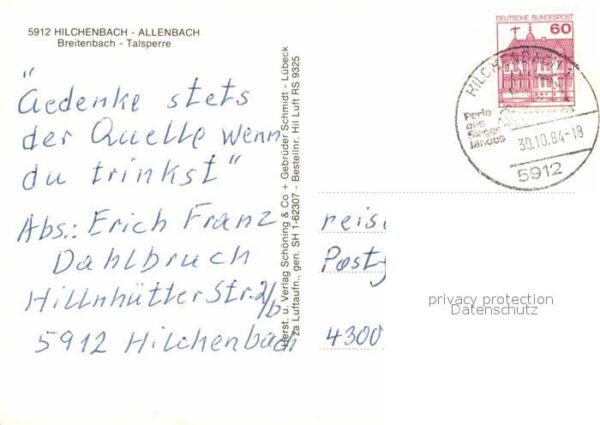 5912 HILCHENBACH - ALLENBACH
Breitenbach - Talsperre
"Gedenke stets
der Quelle wenn
du trinkst"
Abs.: Erich Franz
Dahlbruch
Hillnhütter Str. 2/b
5912 Hilchenbach
Herst. u. Verlag Schöning & Co + Gebrüder Schmidt - Lübeck
za Luftaufn., gen. SH 1-82307 - Bestellnr. Hil Luft RS 9325
DEUTSCHE BUNDESPOST
60
HILCHENBACH
Perle
des
Sieger-
landes
30.10.84-18
5912
reis
Postg
4300
privacy protection
Datenschutz